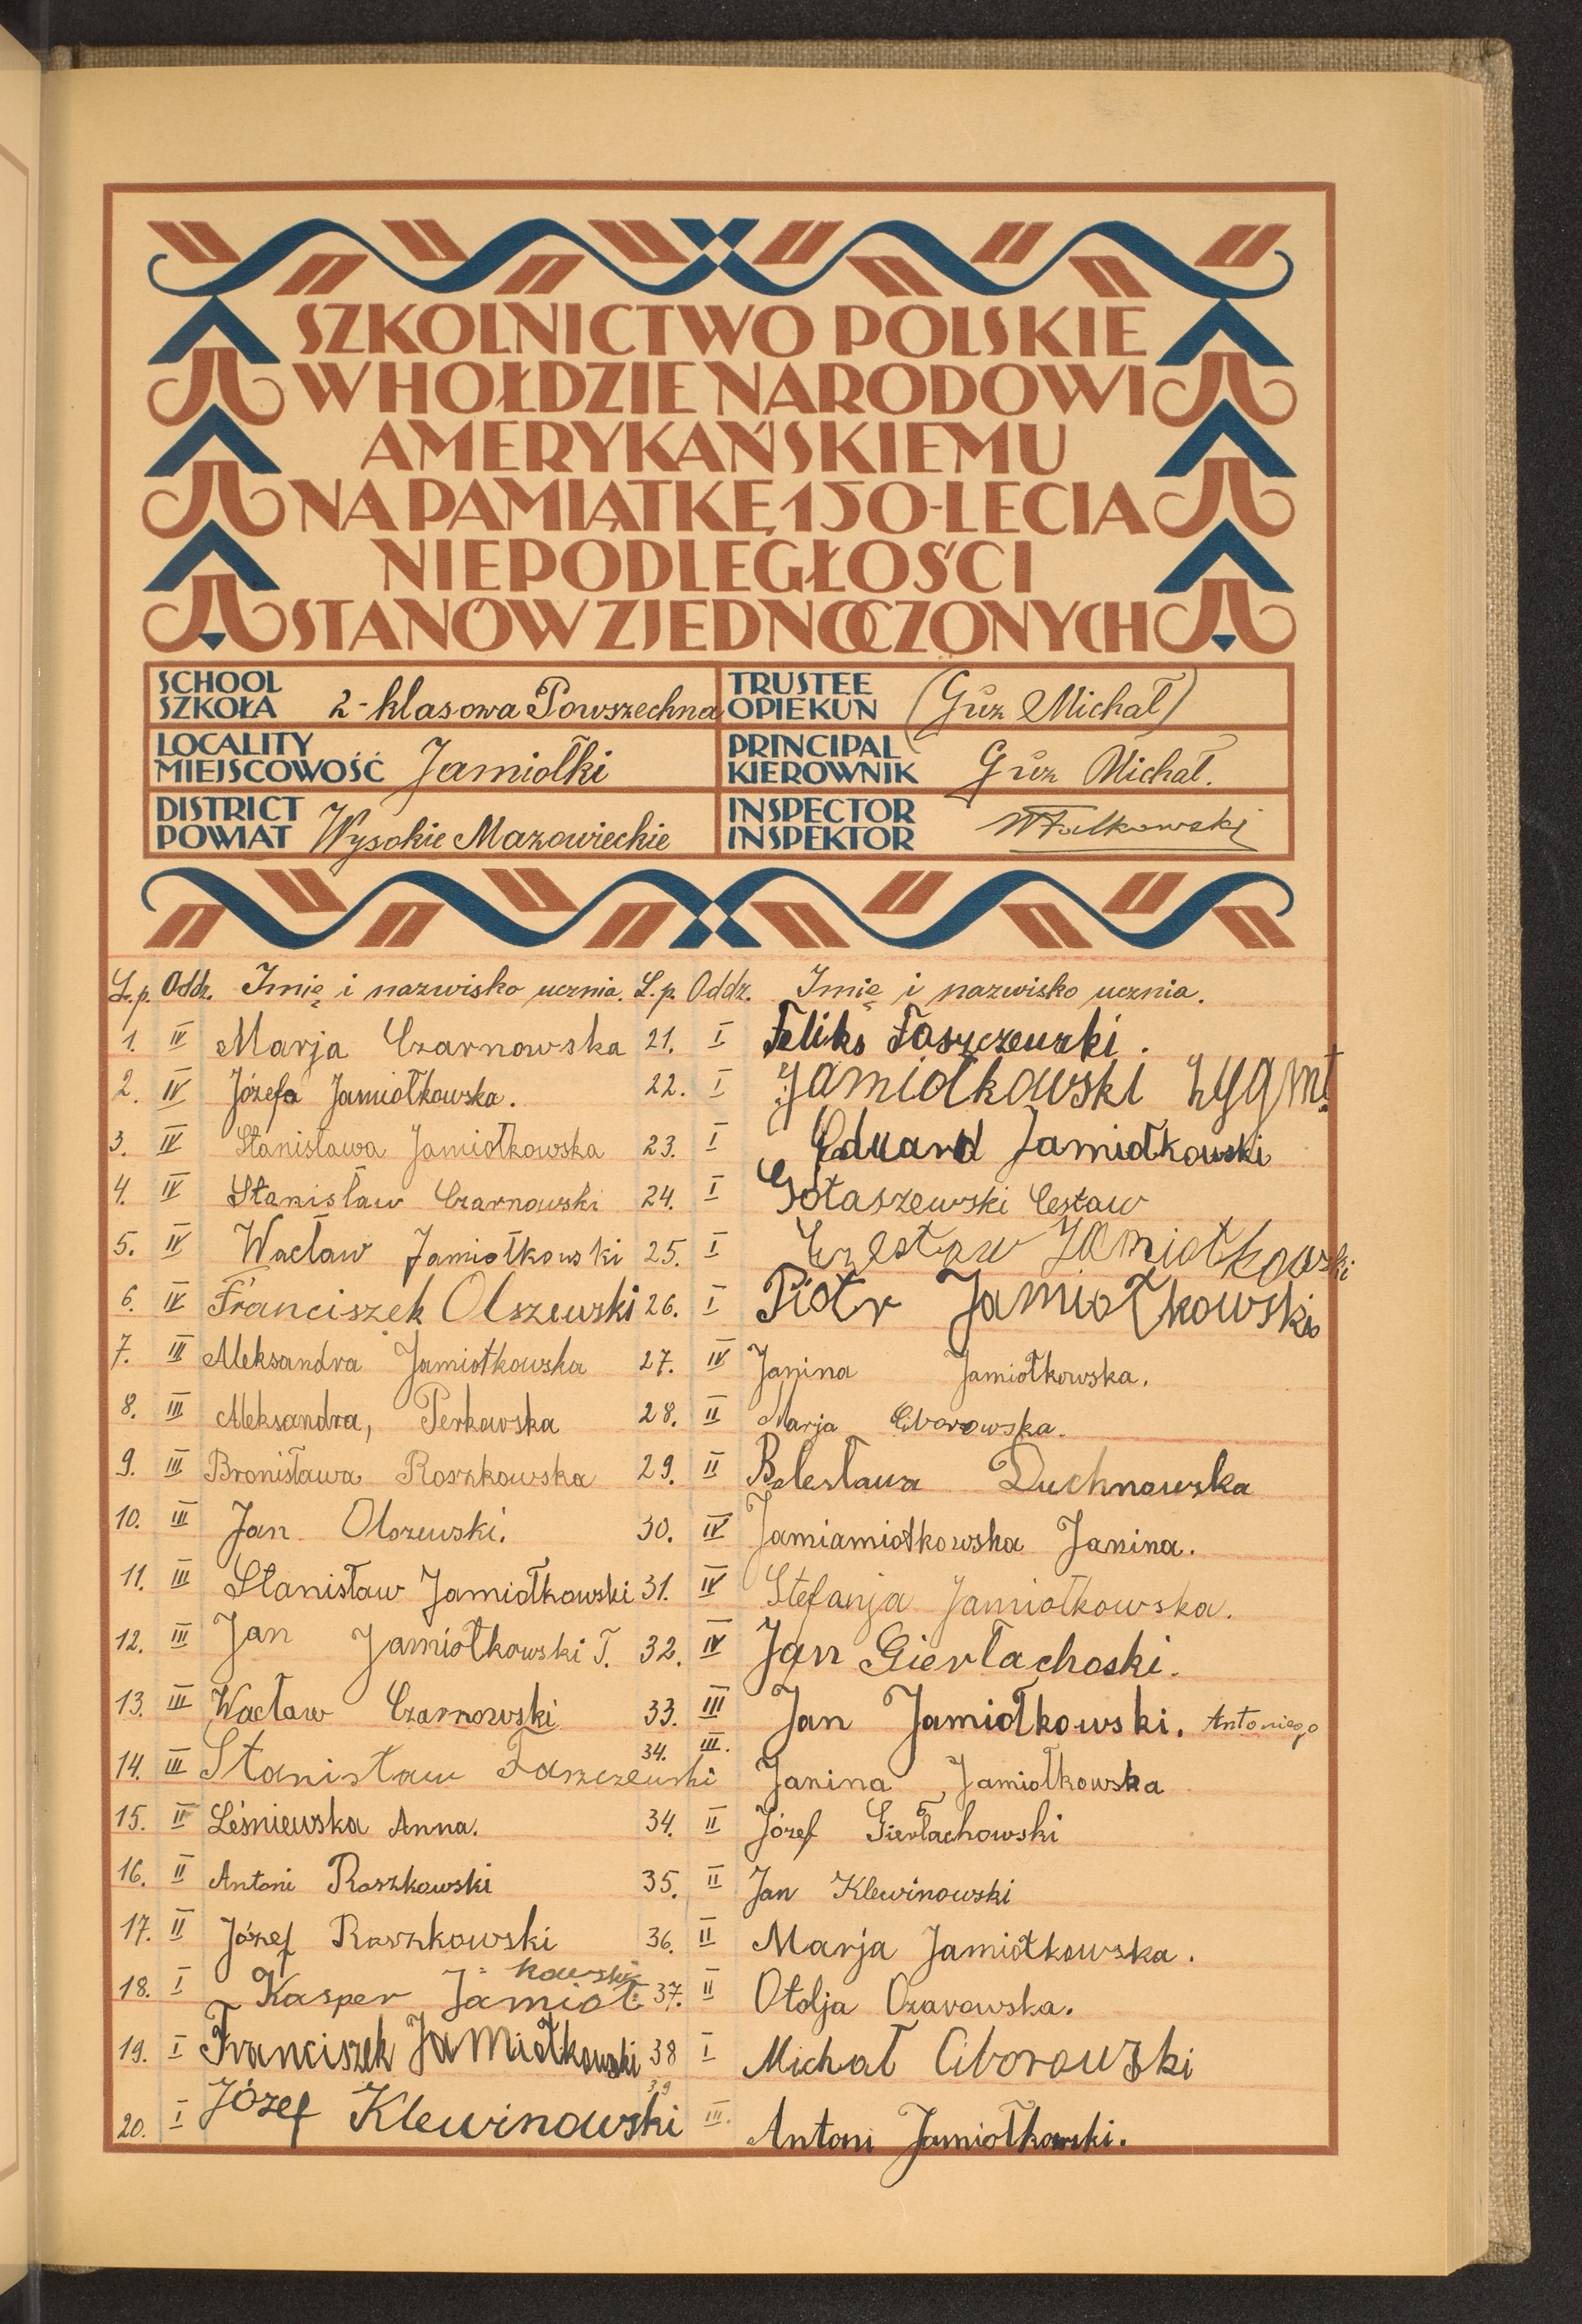 SZKOLNICTWO POLSKIE
W HOŁDZIE NARODOWI
AMERYKAŃSKIEMU
NA PAMIĄTKĘ 150-LECIA
NIEPODLEGŁOŚCI
STANÓW ZJEDNOCZONYCH
SCHOOL
SZKOŁA 2-klasowa Powszechna
TRUSTEE
OPIEKUN (Guz Michał)
LOCALITY
MIEJSCOWOŚĆ Jamiołki
PRINCIPAL
KIEROWNIK Guz Michał.
DISTRICT
POWIAT Wysokie Mazowieckie
INSPECTOR
INSPEKTOR
L.p. Oddz. Imię i nazwisko ucznia.
1. IV Marja Czarnowska
2. IV Józefa Jamiołkowska.
3. IV Stanisława Jamiołkowska
4. IV Stanisław Czarnowski
5. IV Wacław Jamiołkowski
6. IV Franciszek Olszewski
7. III Aleksandra Jamiołkowska
8. III Aleksandra, Perkowska
9. III Bronisława Roszkowska
10. III Jan Olszewski.
11. III Stanisław Jamiołkowski
12. III Jan Jamiołkowski T.
13. III Wacław Czarnowski
14. III Stanisław Faszczewski
15. II Leśniewska Anna.
16. II Antoni Roszkowski
17. II Józef Roszkowski
18. I Kasper Jamioł=kowski
19. I Franciszek Jamiołkowski
20. I Józef Klewinowski
L.p. Oddz. Imię i nazwisko ucznia.
21. I Feliks Faszczewski.
22. I Jamiołkowski Zygmt.
23. I Eduard Jamiołkowski
24. I Gołaszewski Cesław
25. I Czesław Jamiołkowski
26. I Piotr Jamiołkowski
27. IV Janina Jamiołkowska.
28. II Marja Ciborowska.
29. II Bolesława Duchnowska
30. IV Jamiamiołkowska Janina.
31. IV Stefanja Jamiołkowska.
32. IV Jan Gierłachoski.
33. III Jan Jamiołkowski. Antoniego
34. III. Janina Jamiołkowska
34. II Józef Gierłachowski
35. II Jan Klewinowski
36. II Marja Jamiołkowska.
37. II Otolja Ozarowska.
38 I Michał Ciborowski
39 III. Antoni Jamiołkowski.